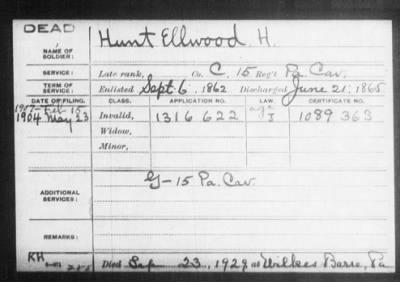 DEAD
NAME OF SOLDIER: Hunt Ellwood H.
SERVICE: Late rank, Co. C, 15 Reg't Pa. Cav.
TERM OF SERVICE: Enlisted Sept 6, 1862 Discharged June 21, 1865
DATE OF FILING. CLASS. APPLICATION NO. LAW. CERTIFICATE NO.
1907-Feb 15
1904 May 23 Invalid, 1316 622 age 1089 363
Widow,
Minor,
ADDITIONAL SERVICES: G-15 Pa. Cav.
REMARKS:
RH
Died Sep 23, 1929 at Wilkes Barre, Pa